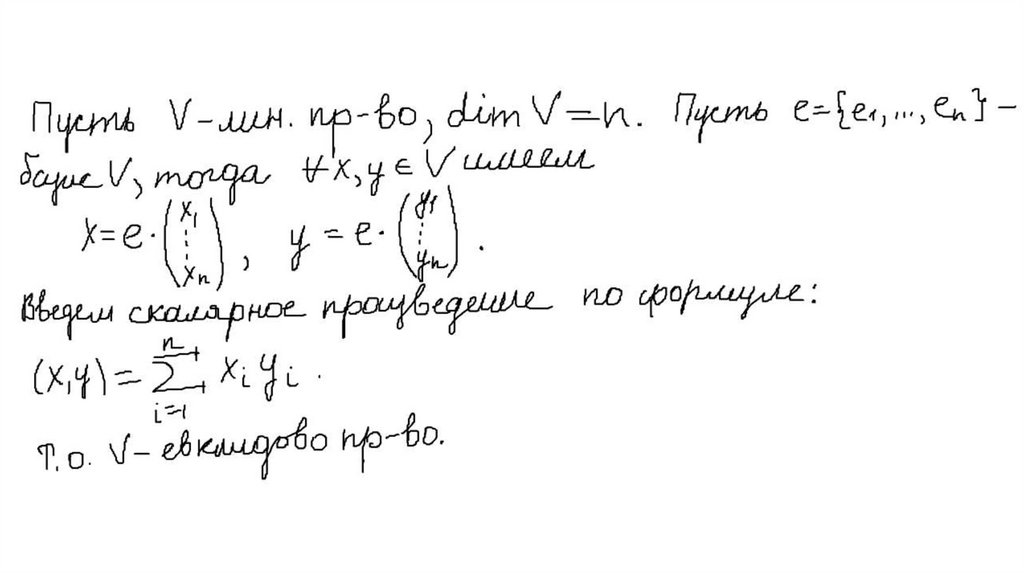 Пусть V-лин. пр-во, dim V=n. Пусть e={e₁,...,eₙ}-
базис V, тогда ∀x,y∈V имеем
x=e·(x₁ ⋮ xₙ), y=e·(y₁ ⋮ yₙ).
Введем скалярное произведение по формуле:
(x,y)=∑ⁿᵢ₌₁ xᵢyᵢ.
т.о. V-евклидово пр-во.